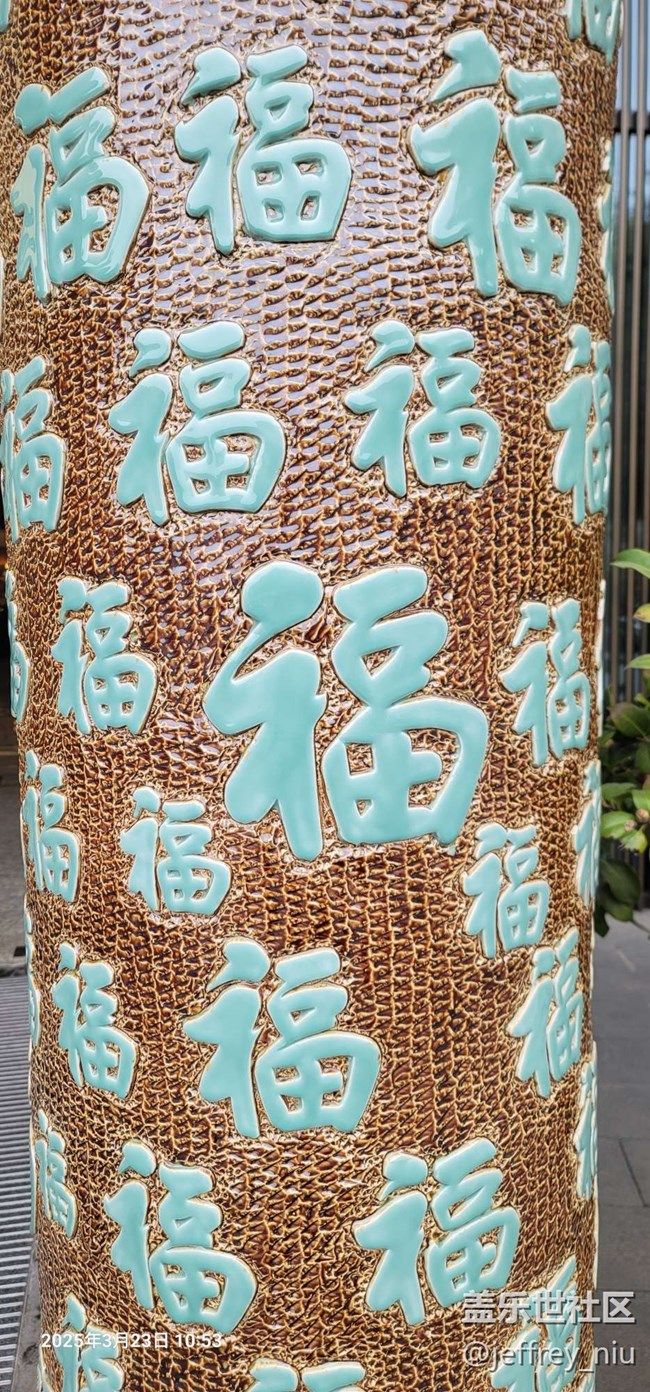 福 福 福
福 福 福 福
福 福 福
福 福 福
福 福 福
福 福 福
2025年3月23日 10:53
盖乐世社区
@jeffrey_niu